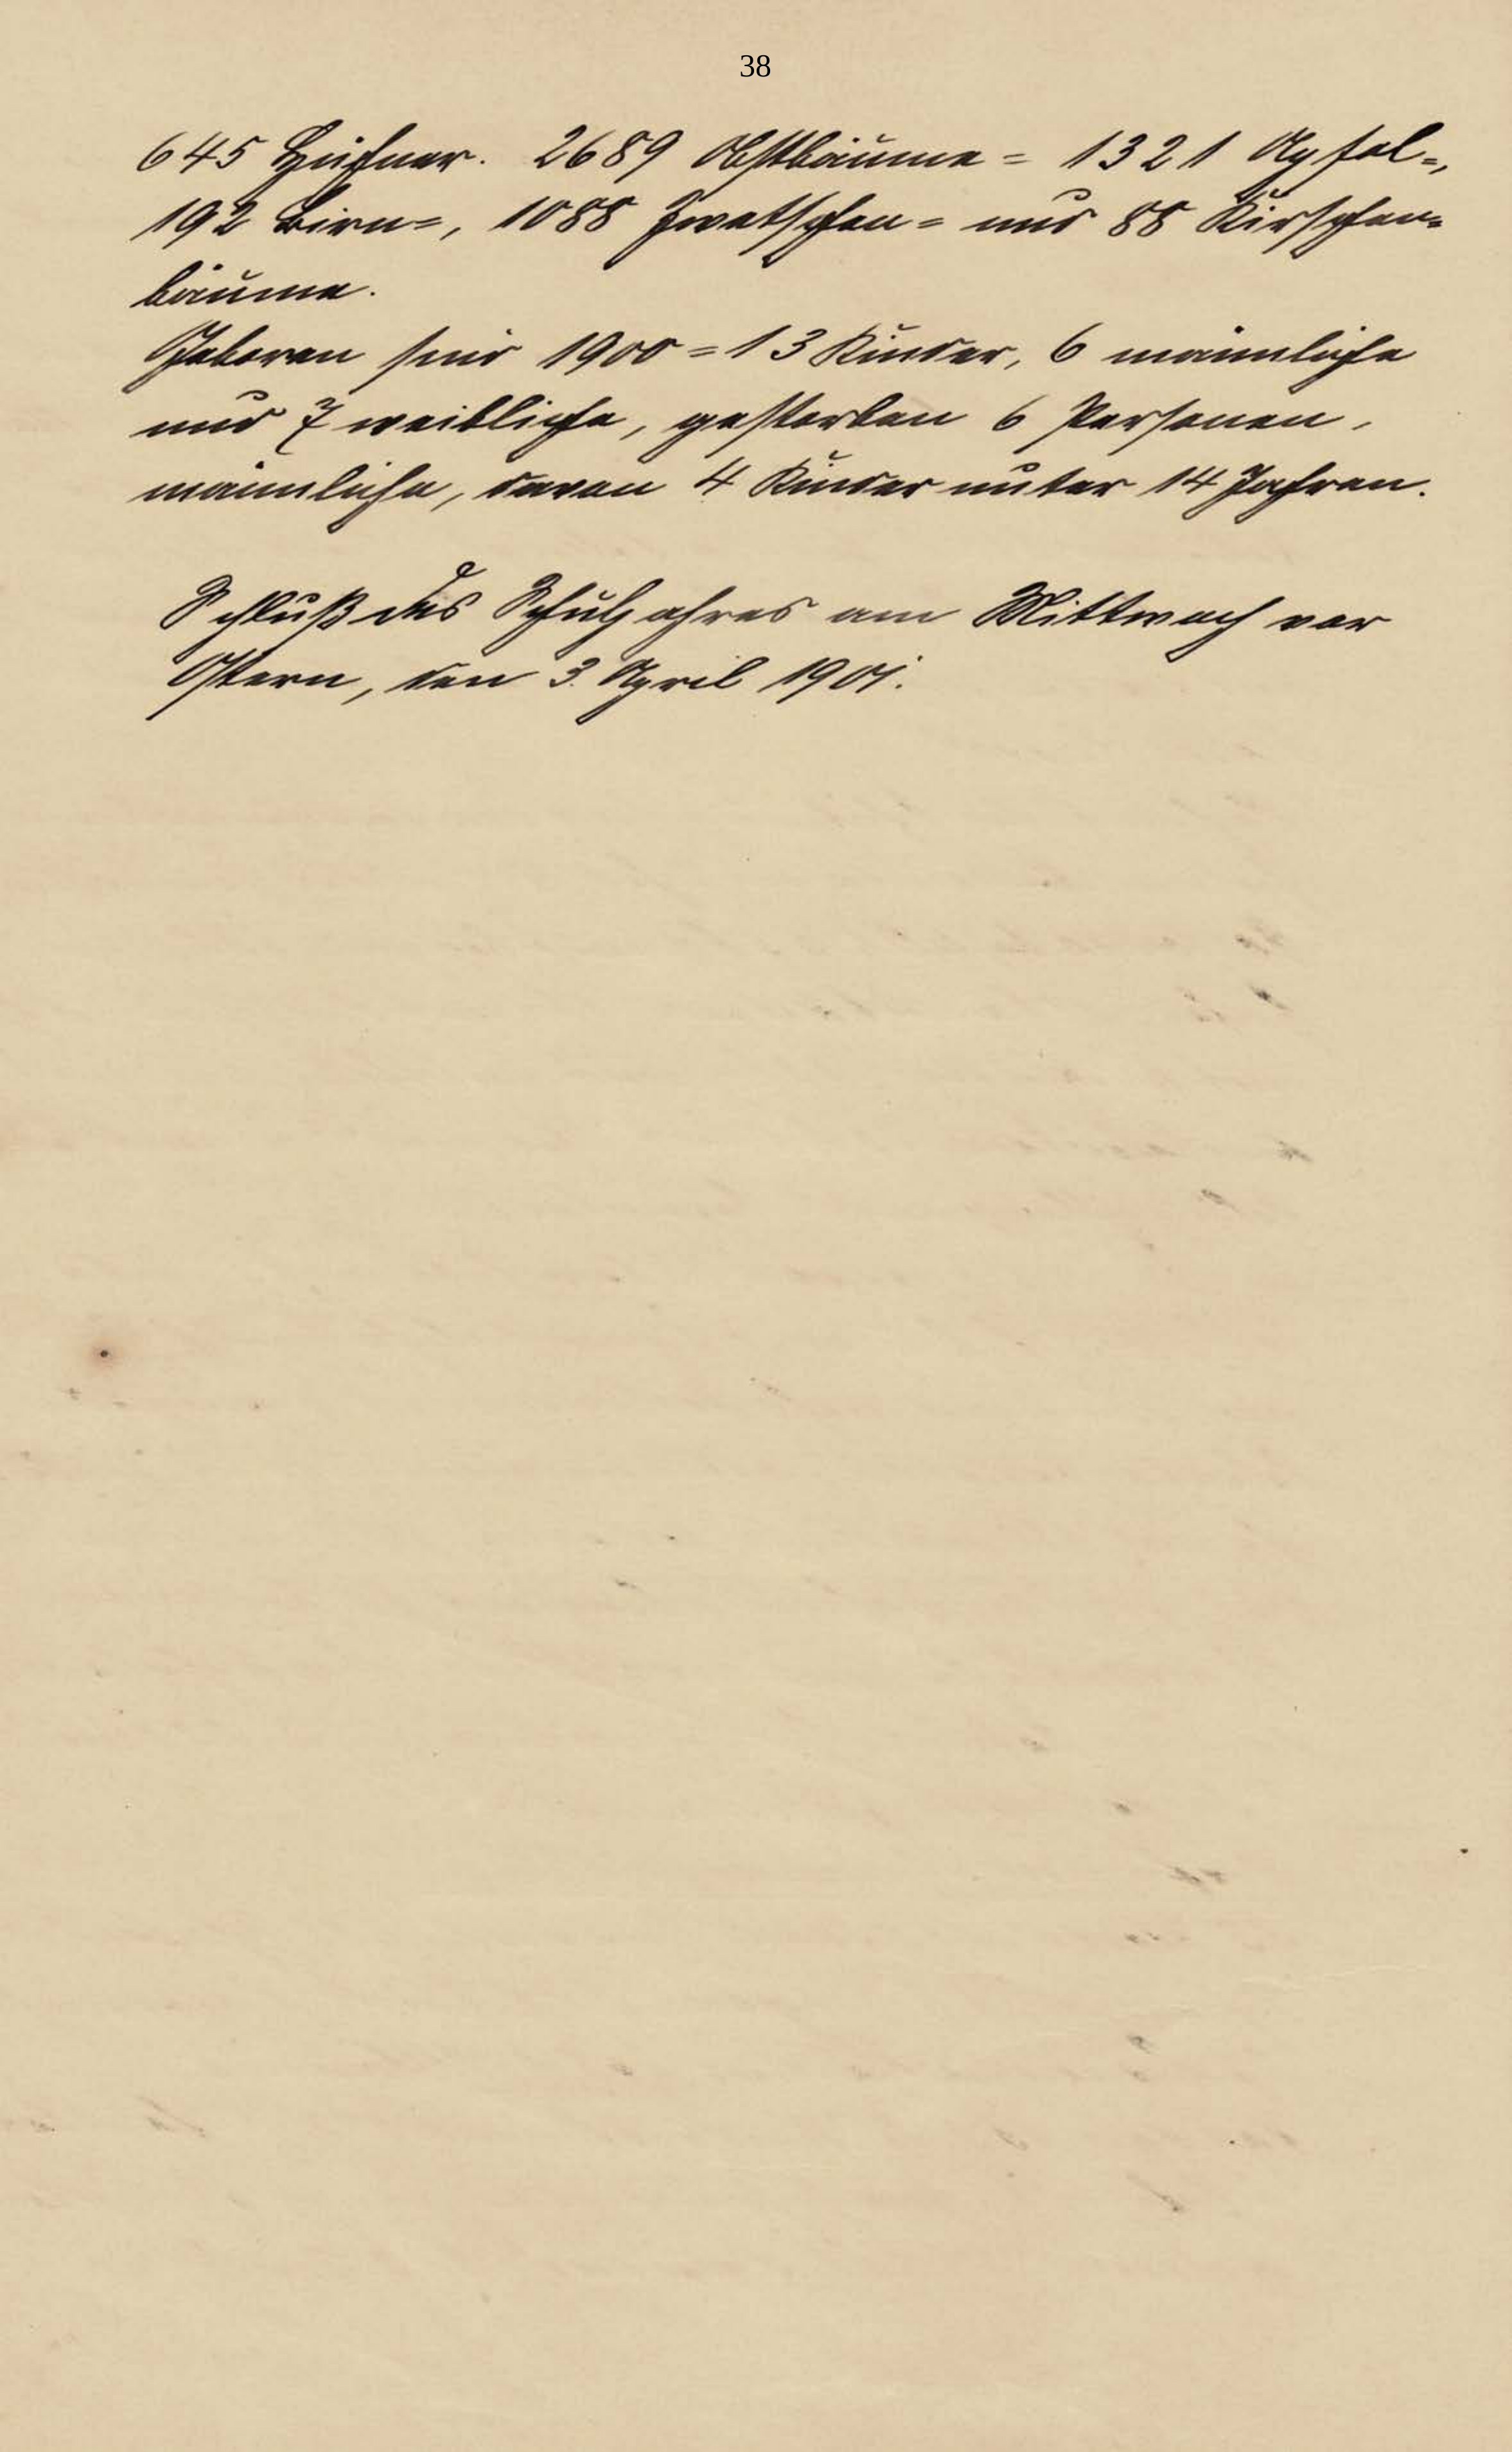 38
645 Hühner. 2689 Obstbäume = 1321 Apfel=,
192 Birn=, 1088 Zwetschen= und 88 Kirschen=
bäume.
Geboren sind 1900 = 13 Kinder, 6 männliche
und 7 weibliche, gestorben 6 Personen,
männliche, davon 4 Kinder unter 14 Jahren.
Schluß des Schuljahres am Mittwoch vor
Ostern, den 3. April 1901.